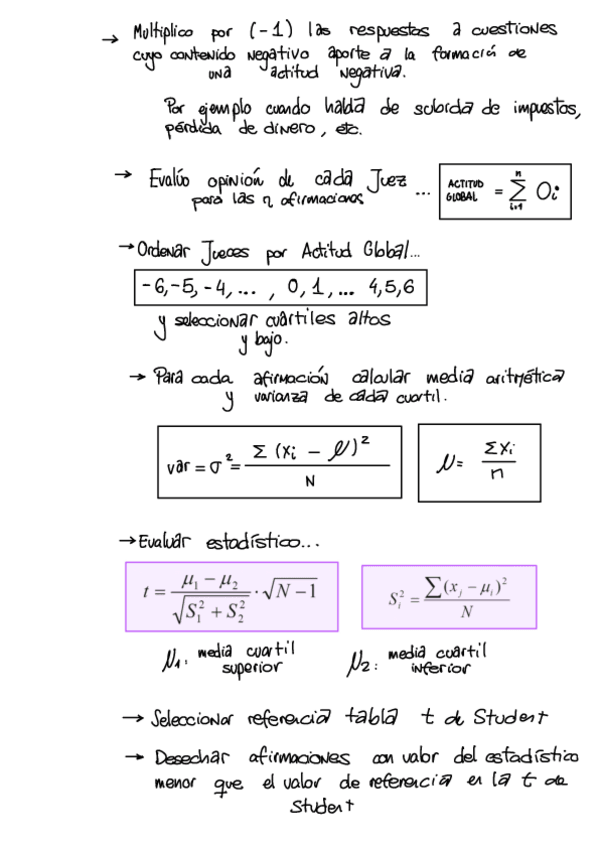 → Multiplico por (-1) las respuestas a cuestiones
cuyo contenido negativo aporte a la formación de
una actitud negativa.
Por ejemplo cuando habla de subida de impuestos,
pérdida de dinero, etc.
→ Evalúo opinión de cada Juez ...
para las n afirmaciones
ACTITUD GLOBAL = \sum_{i=1}^{n} O_i
→ Ordenar Jueces por Actitud Global...
-6,-5,-4,... , 0,1,... 4,5,6
y seleccionar cuartiles altos
y bajo.
→ Para cada afirmación calcular media aritmética
y varianza de cada cuartil.
var = σ² = \frac{Σ (x_i - μ)²}{N}
μ = \frac{Σx_i}{n}
→ Evaluar estadístico...
t = \frac{μ_1 - μ_2}{\sqrt{S_1^2 + S_2^2}} · \sqrt{N-1}
S_i^2 = \frac{\sum(x_j - μ_i)^2}{N}
μ1: media cuartil
superior
μ2: media cuartil
inferior
→ Seleccionar referencia tabla t de Student
→ Desechar afirmaciones con valor del estadístico
menor que el valor de referencia en la t de
Student